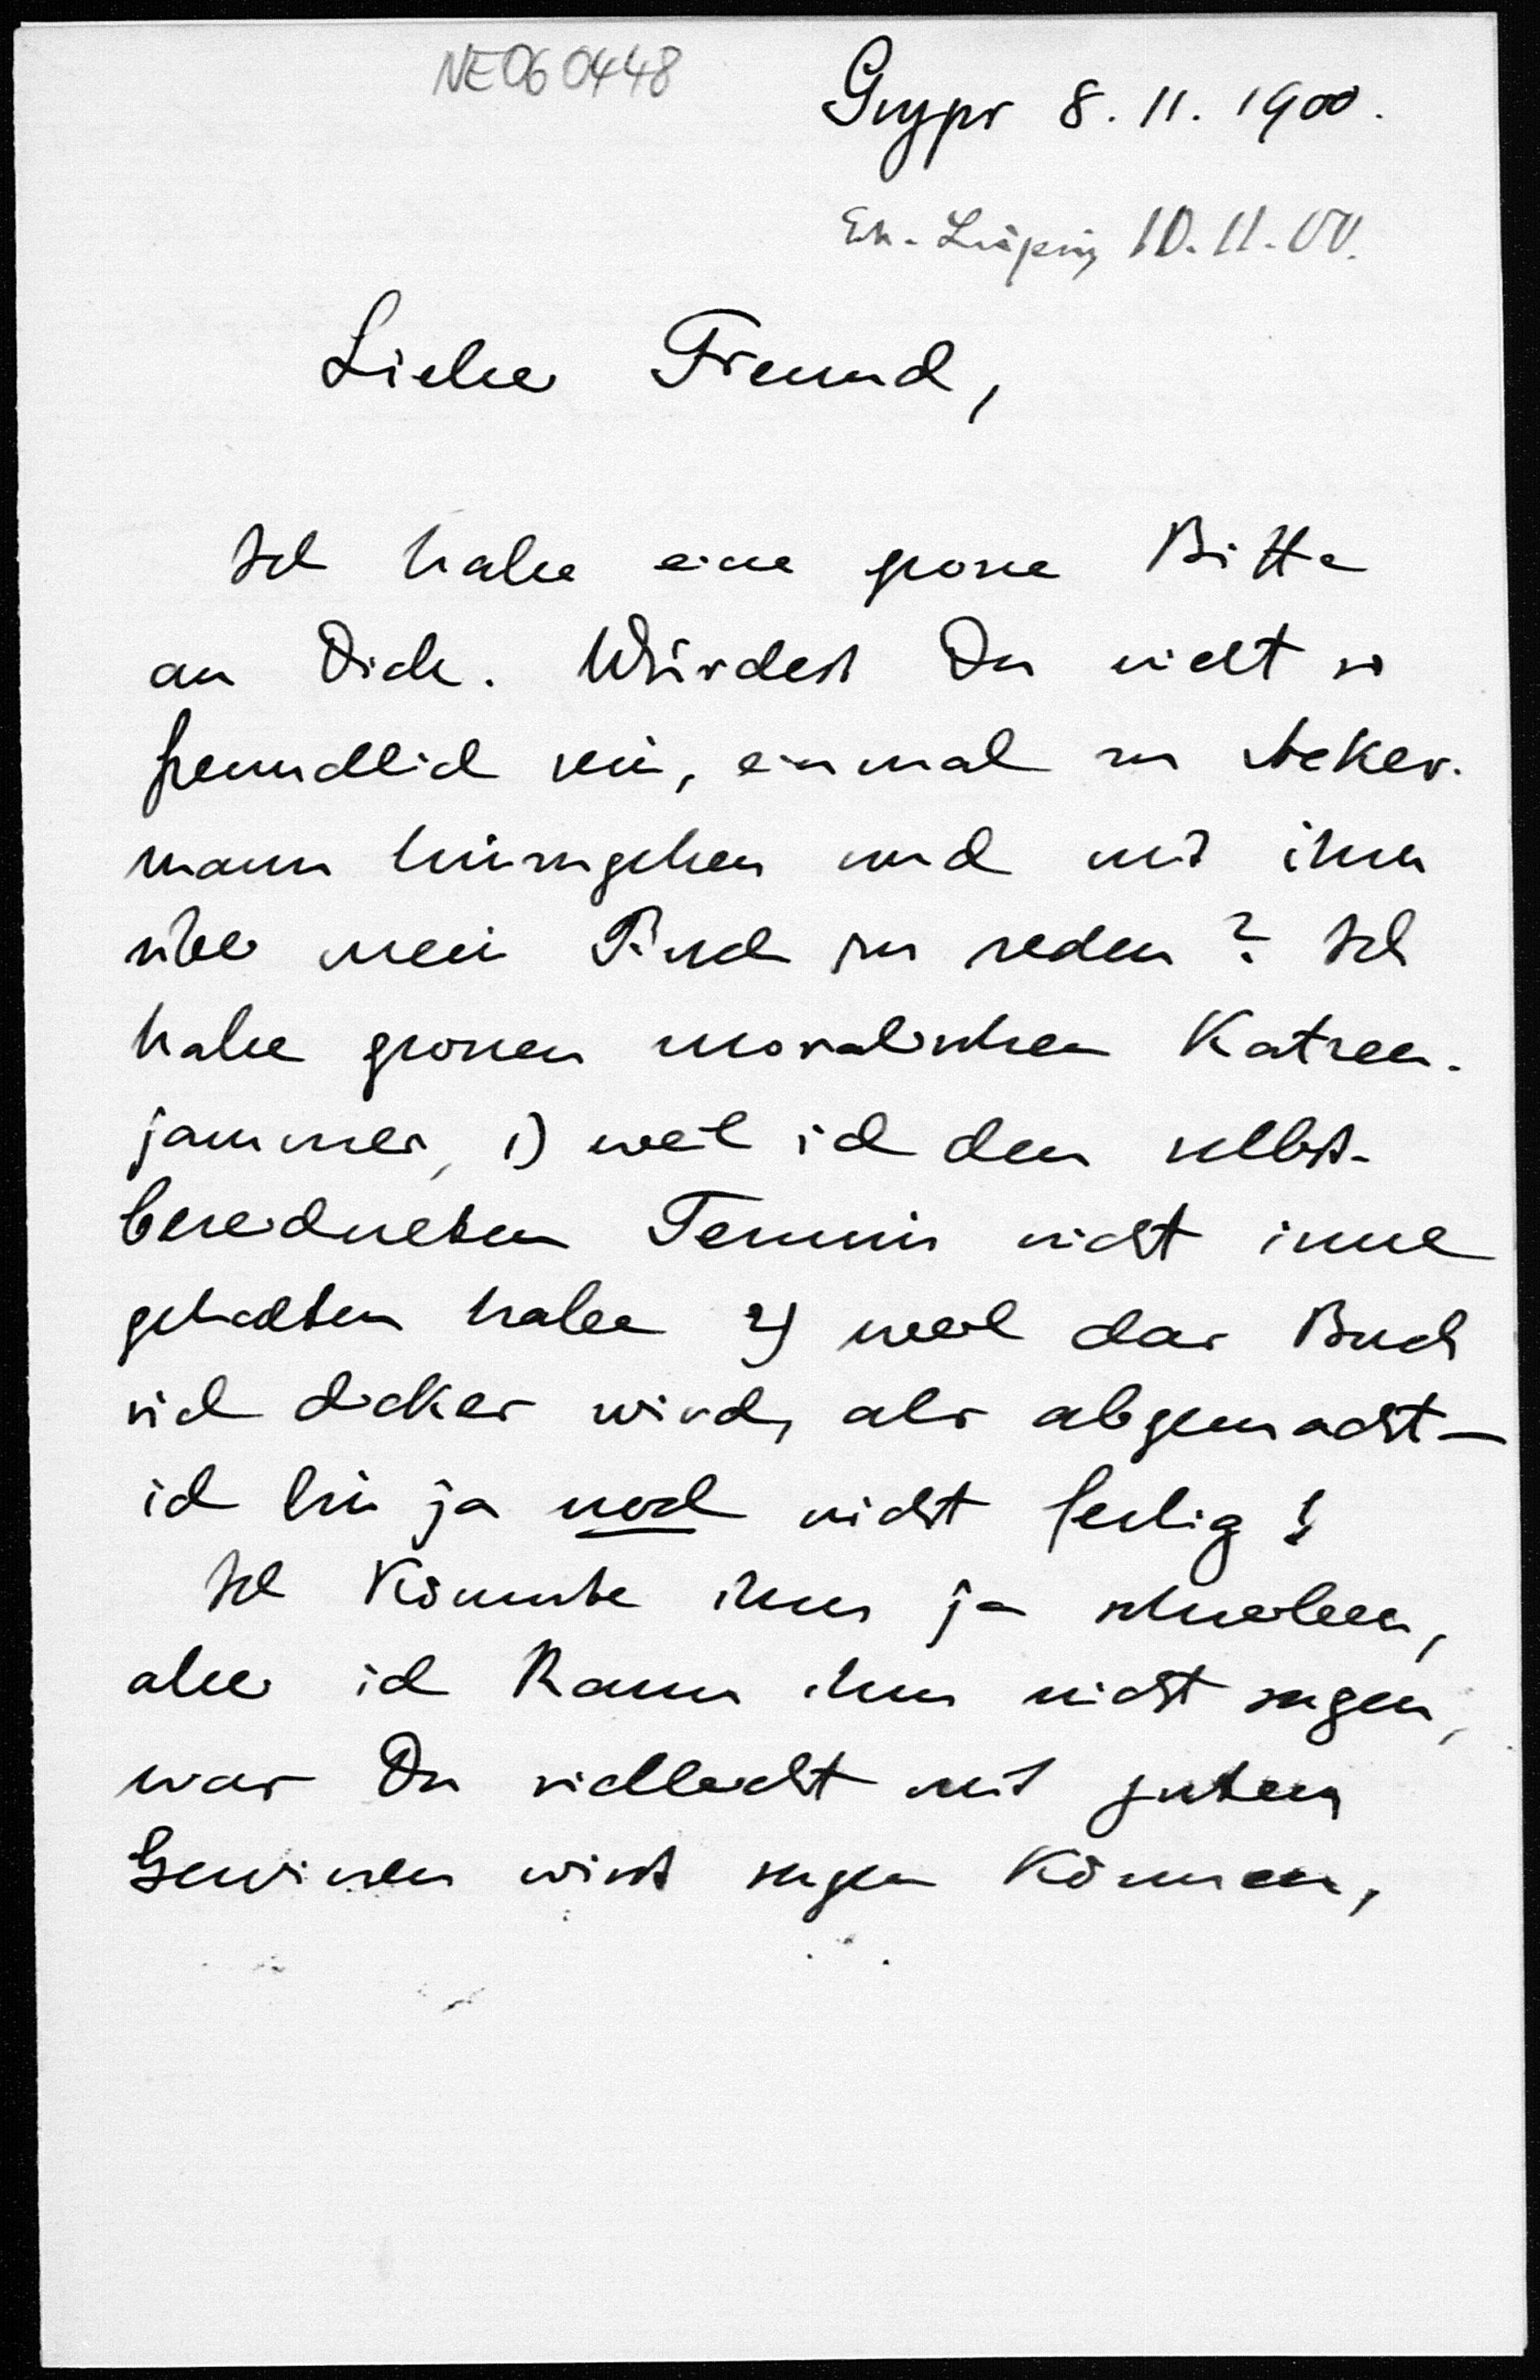 NE060448
Gryps 8. 11. 1900.
Eh. Leipzig 10. 11. 00.
Lieber Freund,
Ich habe eine grosse Bitte
an Dich. Würdest Du nicht so
freundlich sein, einmal zu Acker-
mann hinzugehen und mit ihm
über mein Buch zu reden? Ich
habe grossen moralischen Katzen-
jammer, 1) weil ich den selbst-
berechneten Termin nicht inne
gehalten habe 2) weil das Buch
viel dicker wird, als abgemacht –
ich bin ja noch nicht fertig!
Ich könnte ihm ja schreiben,
aber ich kann ihm nicht sagen,
was Du vielleicht mit gutem
Gewissen wirst sagen können,